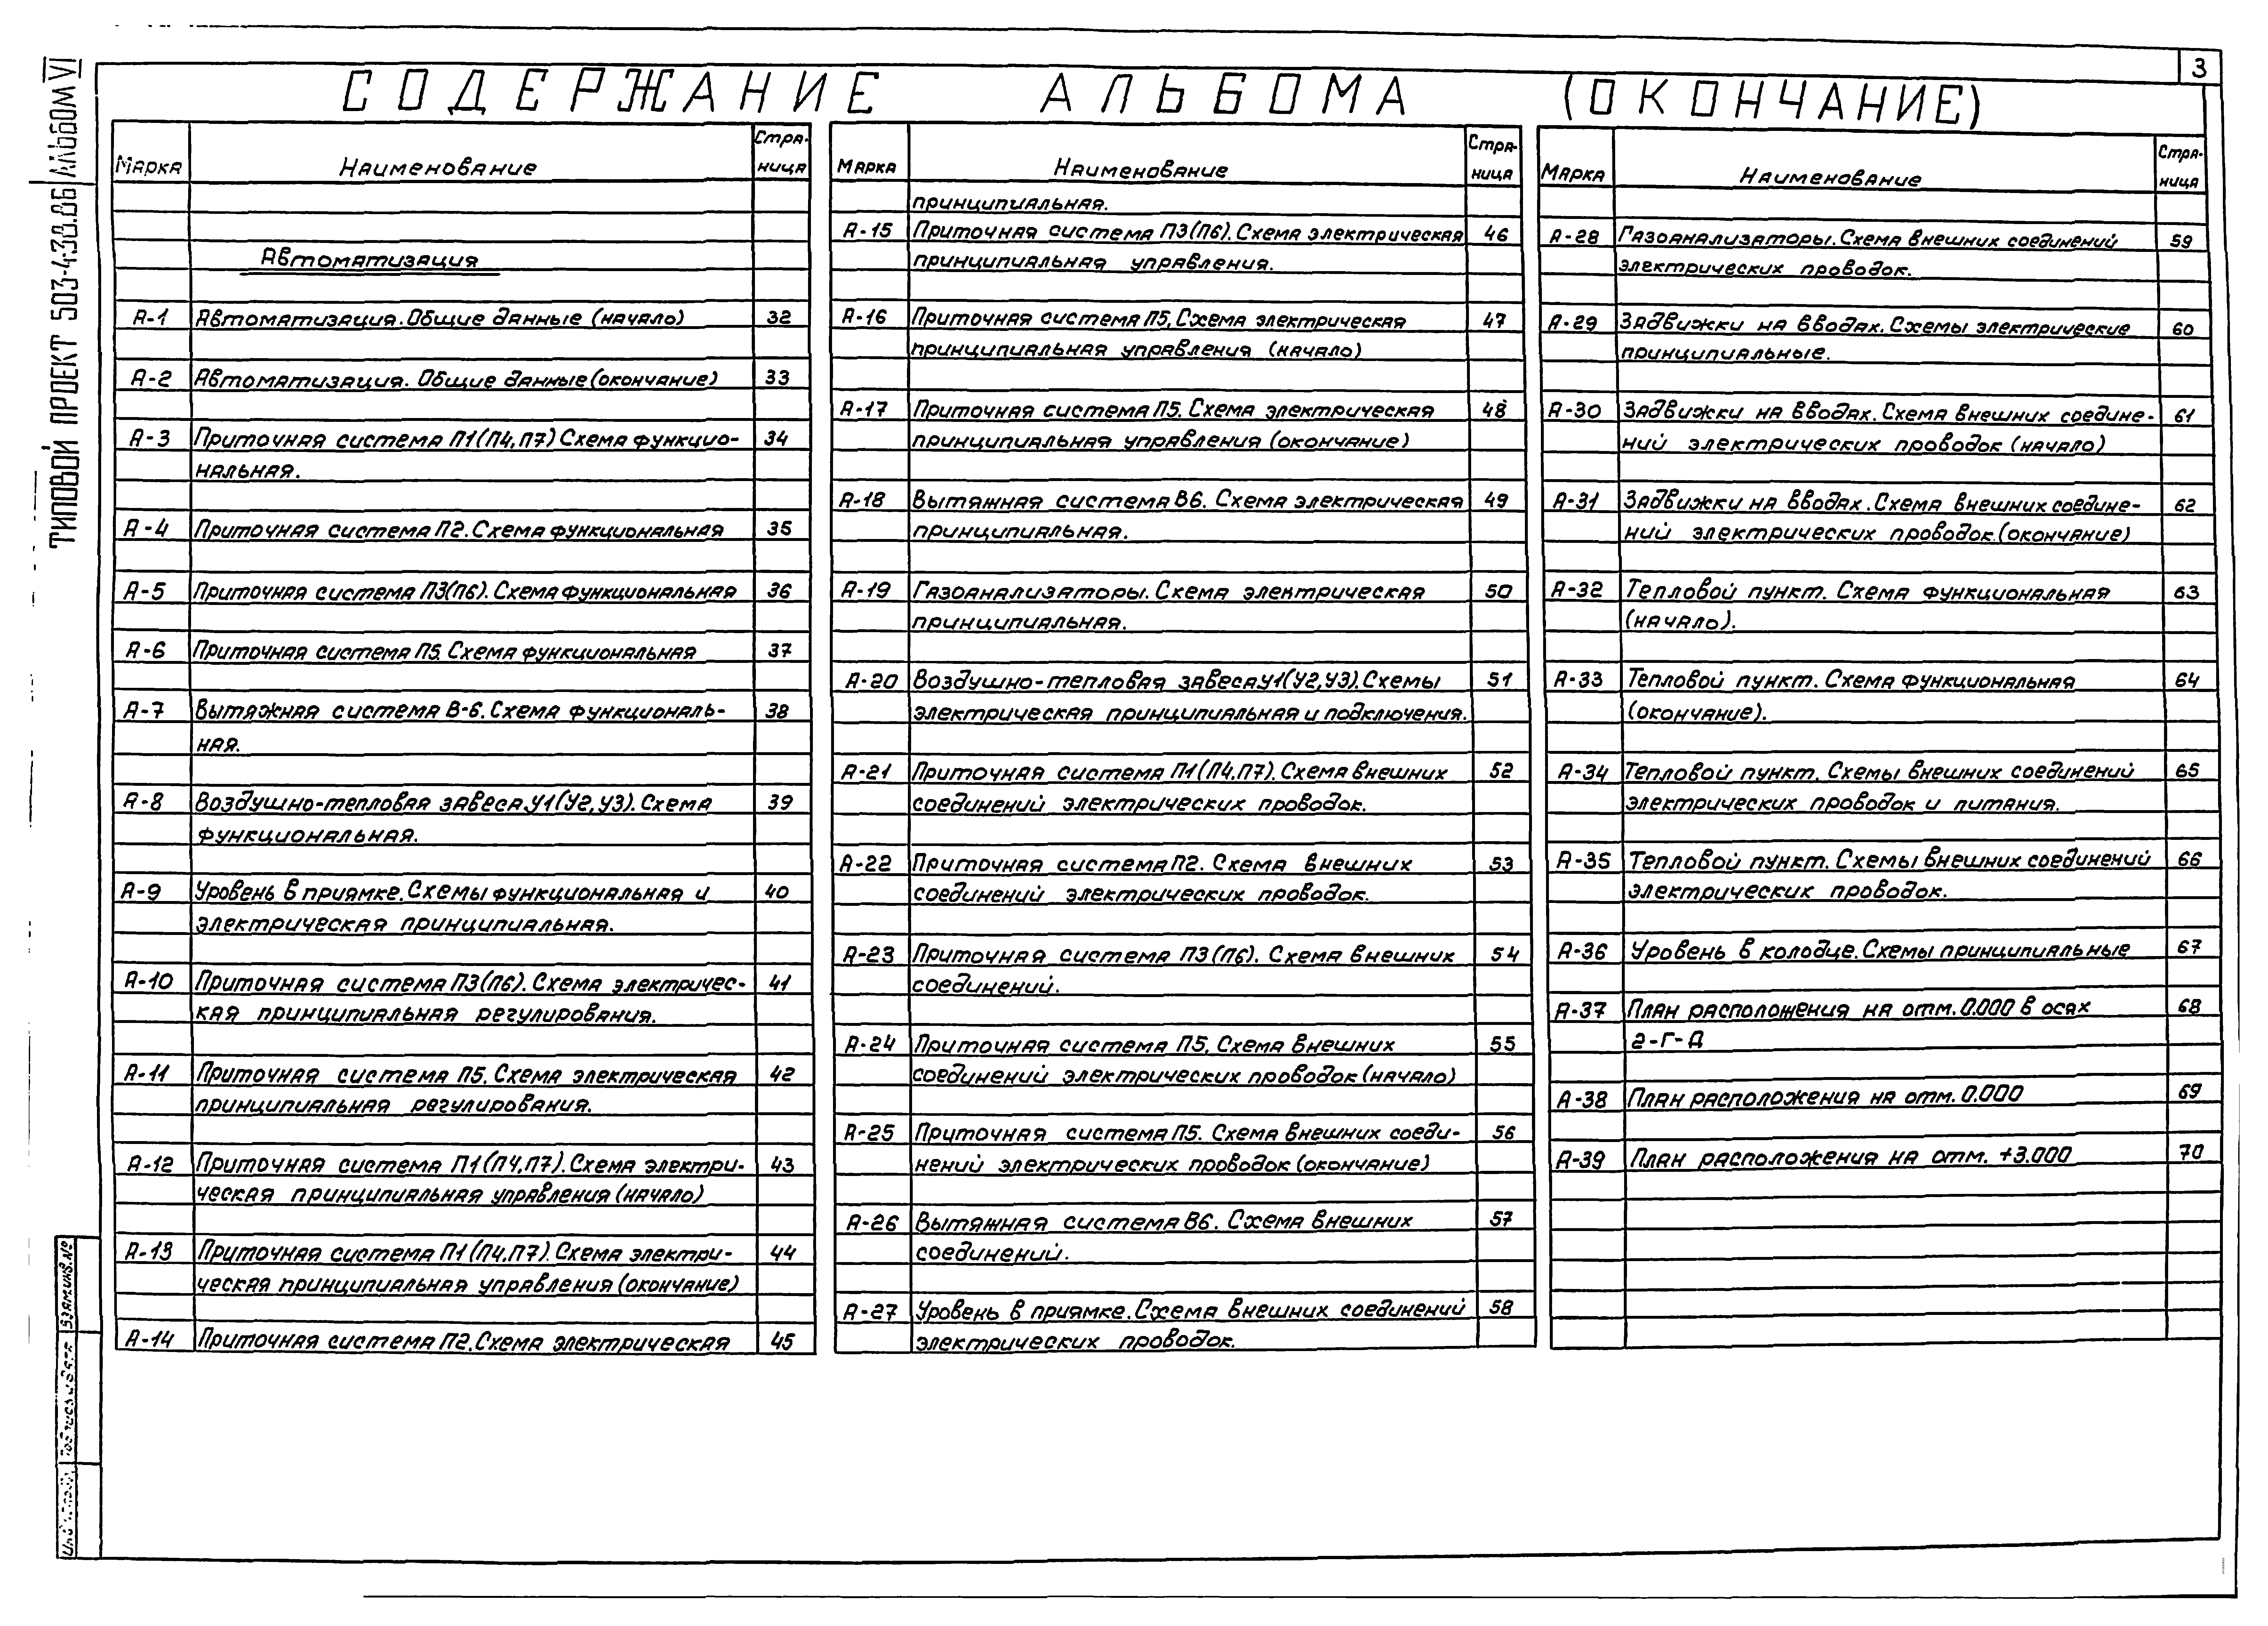 3
СОДЕРЖАНИЕ АЛЬБОМА (ОКОНЧАНИЕ)
ТИПОВОЙ ПРОЕКТ 503-4.38.86 АЛЬБОМ VI
Марка Наименование Стра-
ница
Автоматизация
А-1 Автоматизация. Общие данные (начало) 32
А-2 Автоматизация. Общие данные (окончание) 33
А-3 Приточная система П1(П4,П7) Схема функцио- 34
нальная.
А-4 Приточная система П2. Схема функциональная 35
А-5 Приточная система П3(П6). Схема функциональная 36
А-6 Приточная система П5. Схема функциональная 37
А-7 Вытяжная система В-6. Схема функциональ- 38
ная.
А-8 Воздушно-тепловая завеса У1(У2,У3). Схема 39
функциональная.
А-9 Уровень в приямке. Схемы функциональная и 40
электрическая принципиальная.
А-10 Приточная система П3(П6). Схема электричес- 41
кая принципиальная регулирования.
А-11 Приточная система П5. Схема электрическая 42
принципиальная регулирования.
А-12 Приточная система П1(П4,П7). Схема электри- 43
ческая принципиальная управления (начало)
А-13 Приточная система П1(П4,П7). Схема электри- 44
ческая принципиальная управления (окончание)
А-14 Приточная система П2. Схема электрическая 45
Марка Наименование Стра-
ница
принципиальная.
А-15 Приточная система П3(П6). Схема электрическая 46
принципиальная управления.
А-16 Приточная система П5. Схема электрическая 47
принципиальная управления (начало)
А-17 Приточная система П5. Схема электрическая 48
принципиальная управления (окончание)
А-18 Вытяжная система В6. Схема электрическая 49
принципиальная.
А-19 Газоанализаторы. Схема электрическая 50
принципиальная.
А-20 Воздушно-тепловая завеса У1(У2,У3). Схемы 51
электрическая принципиальная и подключения.
А-21 Приточная система П1(П4,П7). Схема внешних 52
соединений электрических проводок.
А-22 Приточная система П2. Схема внешних 53
соединений электрических проводок.
А-23 Приточная система П3(П6). Схема внешних 54
соединений.
А-24 Приточная система П5. Схема внешних 55
соединений электрических проводок (начало)
А-25 Приточная система П5. Схема внешних соеди- 56
нений электрических проводок (окончание)
А-26 Вытяжная система В6. Схема внешних 57
соединений.
А-27 Уровень в приямке. Схема внешних соединений 58
электрических проводок.
Марка Наименование Стра-
ница
А-28 Газоанализаторы. Схема внешних соединений 59
электрических проводок.
А-29 Задвижки на вводах. Схемы электрические 60
принципиальные.
А-30 Задвижки на вводах. Схема внешних соедине- 61
ний электрических проводок (начало)
А-31 Задвижки на вводах. Схема внешних соедине- 62
ний электрических проводок. (окончание)
А-32 Тепловой пункт. Схема функциональная 63
(начало).
А-33 Тепловой пункт. Схема функциональная 64
(окончание).
А-34 Тепловой пункт. Схемы внешних соединений 65
электрических проводок и питания.
А-35 Тепловой пункт. Схемы внешних соединений 66
электрических проводок.
А-36 Уровень в колодце. Схемы принципиальные 67
А-37 План расположения на отм. 0.000 в осях 68
2-Г-Д
А-38 План расположения на отм. 0.000 69
А-39 План расположения на отм. +3.000 70
Взам. инв. №